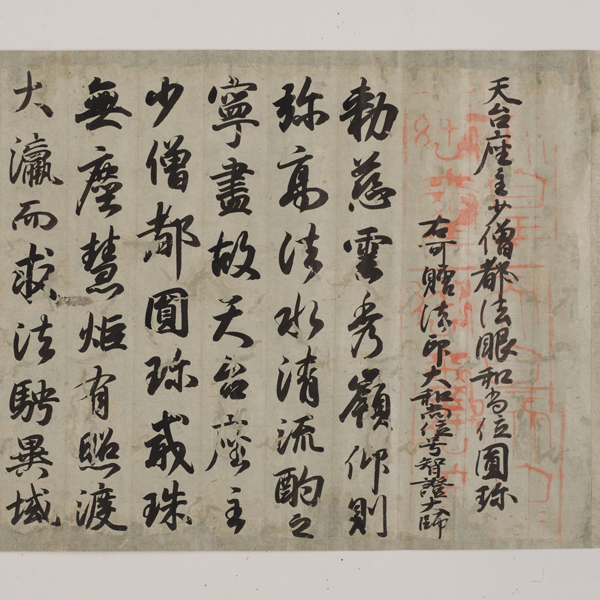 天台座主少僧都法眼和尚位圓珎
右可贈法印大和尚位号智證大師
勅慈雲秀嶺仰則
弥高法水清流酌之
寧盡故天台座主
少僧都圓珎戒珠
無塵慧炬有照渡
大瀛而求法騁異域